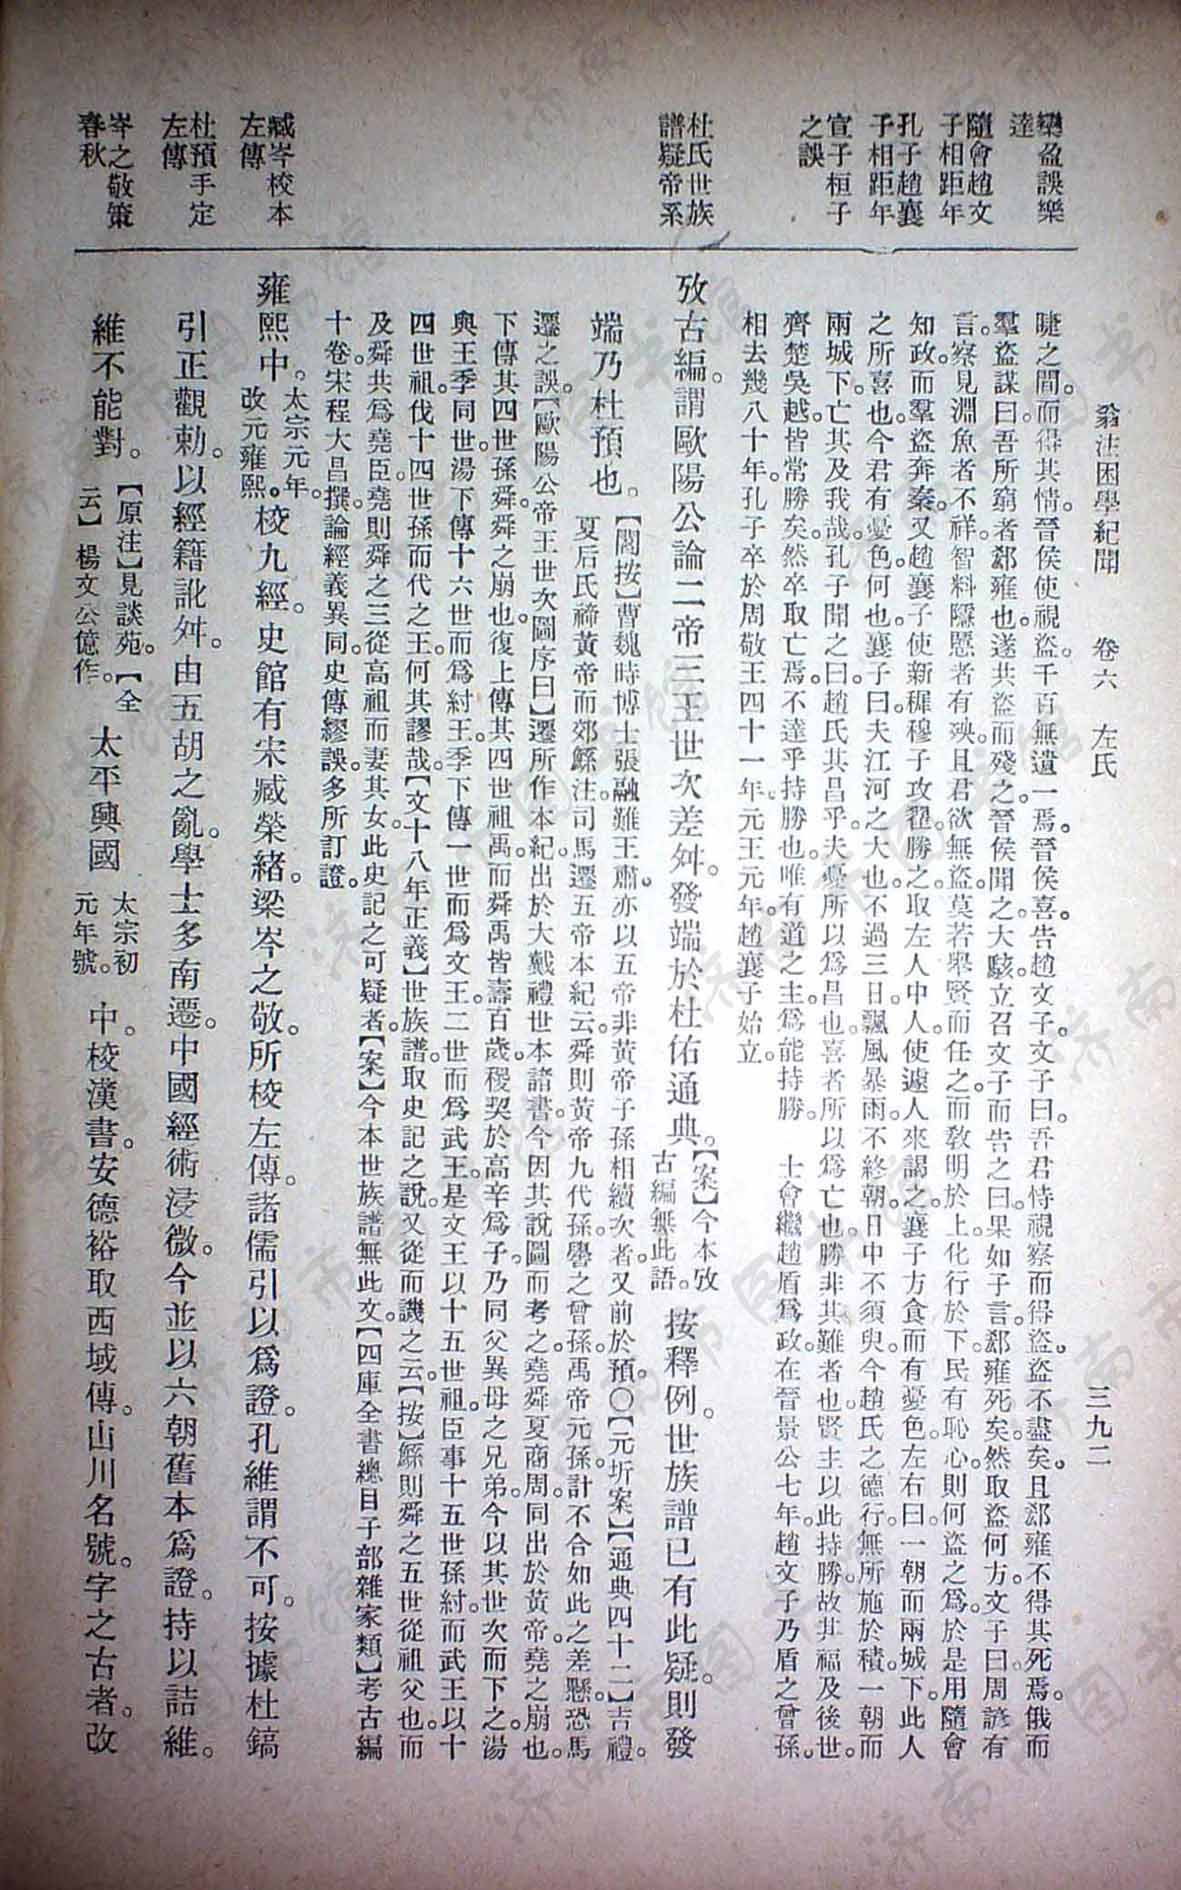 翁注困學紀聞　卷六　左氏　三九二
欒盈誤樂
逵
隨會趙文
子相距年
孔子趙襄
子相距年
宣子桓子
之誤
杜氏世族
譜疑帝系
臧岑校本
左傳
杜預手定
左傳
岑之敬策
春秋
睫之間。而得其情。晉侯使視盜。千百無遺一焉。晉侯喜。告趙文子。文子曰。吾君恃視察而得盜。盜不盡矣。且郄雍不得其死焉。俄而
羣盜謀曰。吾所窮者郄雍也。遂共盜而殘之。晉侯聞之。大駭。立召文子而告之曰。果如子言。郄雍死矣。然取盜何方。文子曰。周諺有
言。察見淵魚者不祥。智料隱慝者有殃。且君欲無盜。莫若舉賢而任之。而敎明於上。化行於下。民有恥心。則何盜之爲。於是用隨會
知政。而羣盜奔秦。又趙襄子使新穉穆子攻翟。勝之。取左人中人。使遽人來謁之。襄子方食而有憂色。左右曰。一朝而兩城下。此人
之所喜也。今君有憂色。何也。襄子曰。夫江河之大也。不過三日。飄風暴雨。不終朝。日中不須臾。今趙氏之德行。無所施於積。一朝而
兩城下。亡其及我哉。孔子聞之曰。趙氏其昌乎。夫憂所以爲昌也。喜者所以爲亡也。勝非其難者也。賢主以此持勝。故其福及後世。
齊楚吳越。皆常勝矣。然卒取亡焉。不達乎持勝也。唯有道之主。爲能持勝　士會繼趙盾爲政。在晉景公七年。趙文子乃盾之曾孫。
相去幾八十年。孔子卒於周敬王四十一年。元王元年。趙襄子始立。
攷古編。謂歐陽公論二帝三王世次差舛。發端於杜佑通典。【案】今本攷古編無此語。按釋例。世族譜已有此疑。則發
端乃杜預也。【閻按】曹魏時博士張融難王肅。亦以五帝非黃帝子孫相續次者。又前於預。〇【元圻案】【通典四十二】吉禮。
夏后氏禘黃帝而郊鯀。注司馬遷五帝本紀云。舜則黃帝九代孫。譽之曾孫。禹帝元孫。計不合如此之差懸。恐馬
遷之誤。【歐陽公帝王世次圖序曰】遷所作本紀。出於大戴禮世本諸書。今因其說圖而考之。堯舜夏商周。同出於黃帝。堯之崩也。
下傳其四世孫舜。舜之崩也。復上傳其四世祖禹。而舜禹皆壽百歲。稷契於高辛爲子。乃同父異母之兄弟。今以其世次而下之。湯
與王季同世。湯下傳十六世而爲紂。王季下傳一世而爲文王。二世而爲武王。是文王以十五世祖。臣事十五世孫紂。而武王以十
四世祖。伐十四世孫而代之王。何其謬哉。【文十八年正義】世族譜。取史記之說。又從而譏之云。【按】鯀則舜之五世從祖父也。而
及舜共爲堯臣。堯則舜之三從高祖而妻其女。此史記之可疑者。【案】今本世族譜無此文。【四庫全書總目子部雜家類】考古編
十卷。宋程大昌撰。論經義異同。史傳繆誤。多所訂證。
雍熙中。太宗元年。改元雍熙。校九經。史館有宋臧榮緒。梁岑之敬。所校左傳。諸儒引以爲證。孔維謂不可。按據杜鎬
引正觀勅。以經籍訛舛。由五胡之亂。學士多南遷。中國經術浸微。今並以六朝舊本爲證。持以詰維。
維不能對。【原注】見談苑。【全云】楊文公億作。太平興國太宗初元年號。中。校漢書。安德裕取西域傳。山川名號。字之古者。改